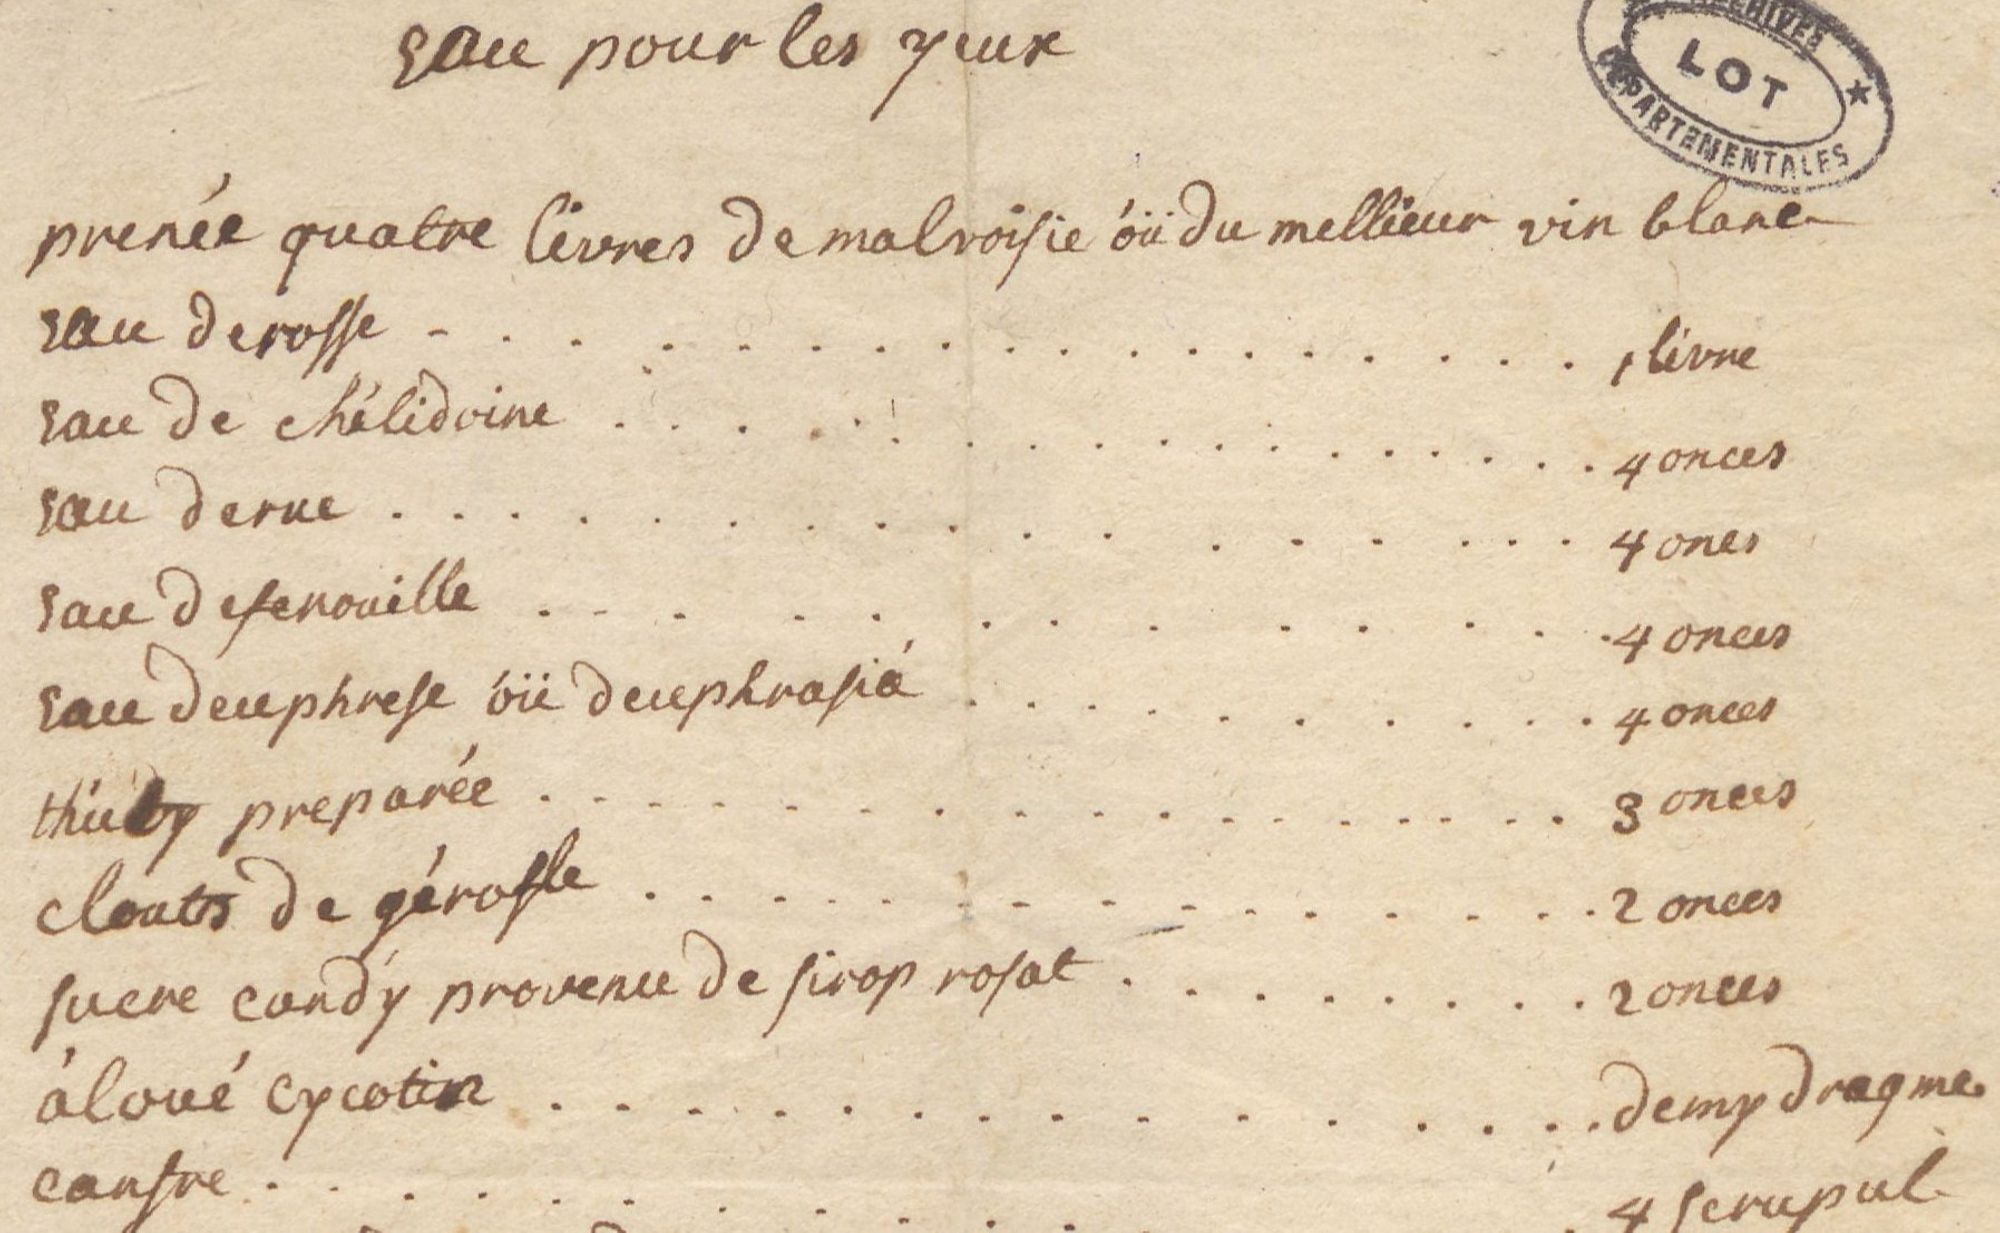 eau pour les yeux
ARCHIVES
LOT
DEPARTEMENTALES
prenée quatre livres de malvoisie óü du mellieur vin blanc
eau de rosse - . . . . . . . . . . . . . . . 1 livre
eau de chélidoine . . . . . . . . . . . . . . 4 onces
eau de rue . . . . . . . . . . . . . . . 4 ones
eau de fenouille . . . . . . . . . . . . 4 onces
eau deuphrese óü deuphrasiá . . . . . . . . . . 4 onces
preparée . . . . . . . . . . . . . . . 3 onces
clouts de gérofle . . . . . . . . . . . . . 2 onces
sucre candy provenu de sirop rosat . . . . . . . . 2 onces
áloué cycotin . . . . . . . . . . . . . . demy dragme
canfre . . . . . . . . . . . . 4 scrupul